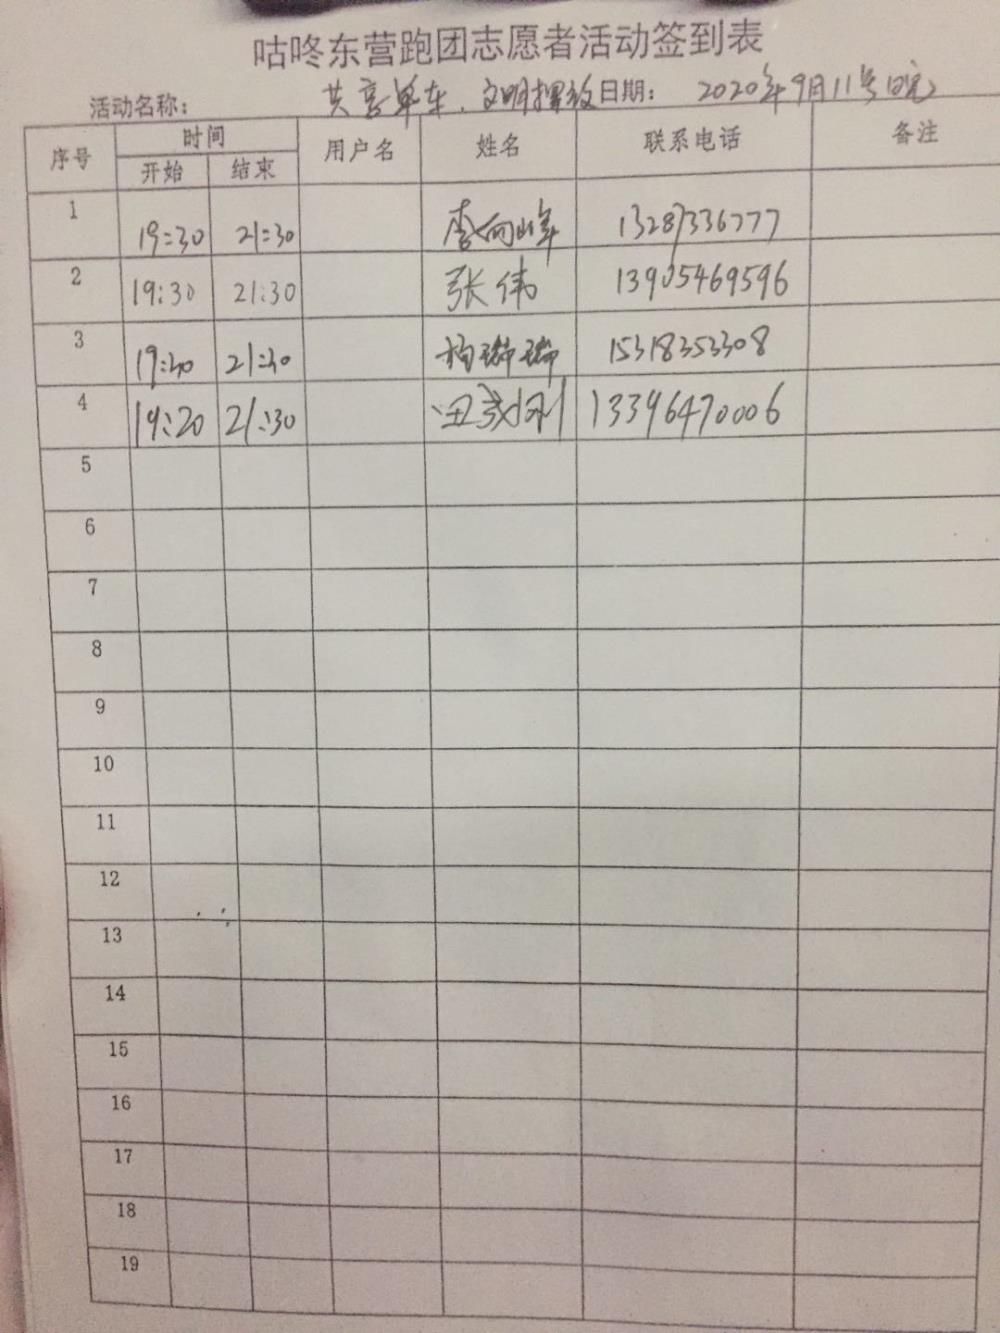 咕咚东营跑团志愿者活动签到表
活动名称: 共享单车、文明摆放 日期: 2020年9月11号晚
序号 时间 用户名 姓名 联系电话 备注
开始 结束
1 19:30 21:30 李向峰 13287336777
2 19:30 21:30 张伟 13905469596
3 19:30 21:30 杨瑞瑞 15318353308
4 19:20 21:30 13396470006
5
6
7
8
9
10
11
12
13
14
15
16
17
18
19